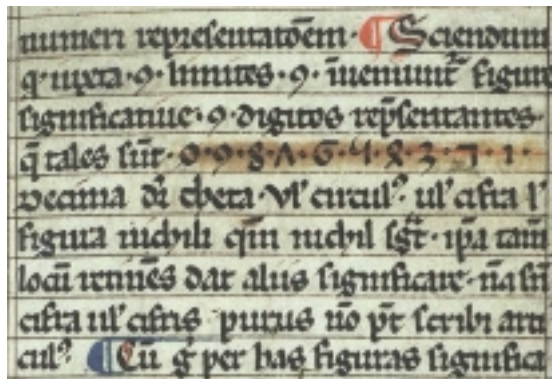 numeri representatõem · ¶ Sciendum
q · iuxta · 9 · limites · 9 · īueniunt᷑ figure
significatiue · 9 · digitos rep̄sentantes ·
q̄ tales sūt · 0 · 9 · 8 · Λ · 6 · 4 · 8 · 3 · 7 · 1 ·
Decima dr̄ theta · ul' circul᷒ · ul' cifra l'
figura nichili qm̄ nichil sḡt · ip̄a tam̄
locū tenēs dat aliis significare · nā sn̄
cifra ul' cifris purus nō pt̄ scribi arti
cul᷒ ¶ Cū g̊ per has figuras significa